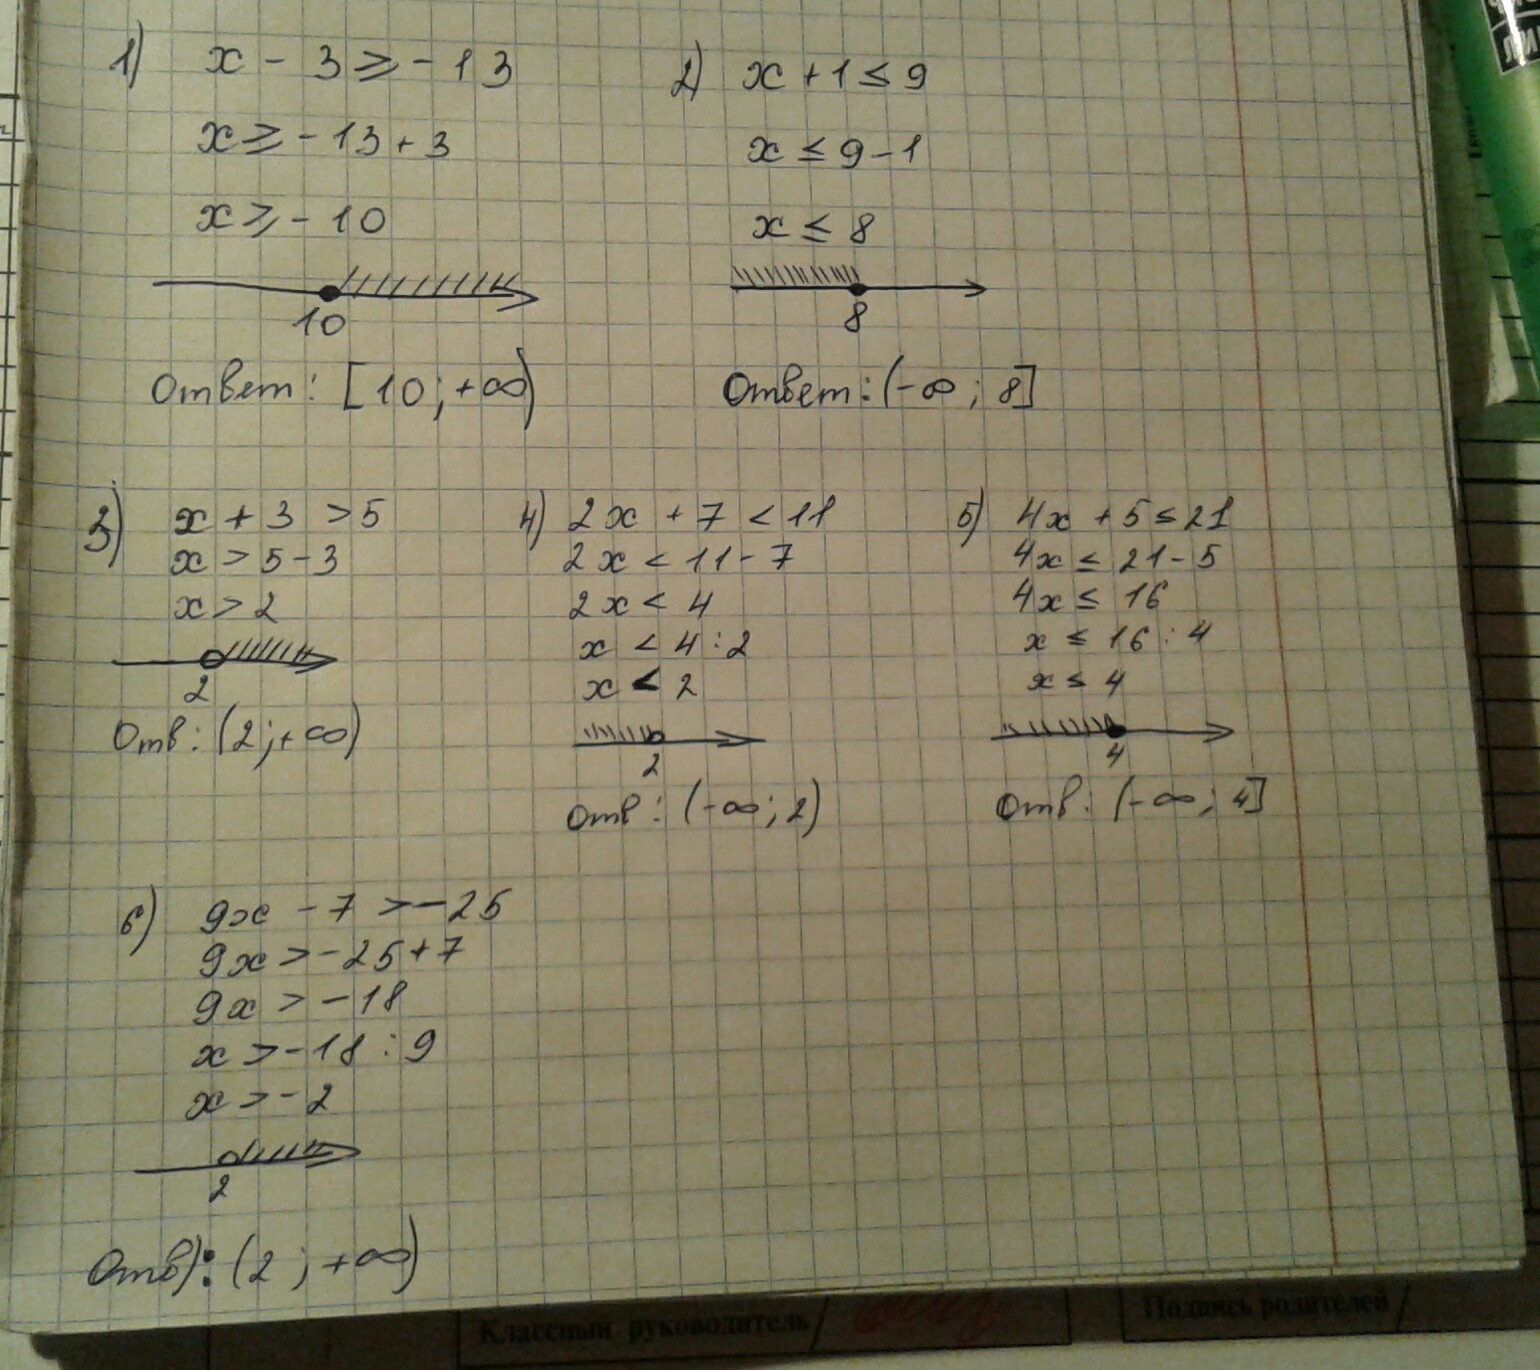 1) x - 3 ⩾ - 13
x ⩾ - 13 + 3
x ⩾ - 10
10
Ответ: [10; +∞)
2) x + 1 ≤ 9
x ≤ 9 - 1
x ≤ 8
8
Ответ: (-∞; 8]
3) x + 3 > 5
x > 5 - 3
x > 2
2
Отв: (2; +∞)
4) 2x + 7 < 11
2x < 11 - 7
2x < 4
x < 4 : 2
x < 2
2
Отв: (-∞; 2)
5) 4x + 5 ≤ 21
4x ≤ 21 - 5
4x ≤ 16
x ≤ 16 : 4
x ≤ 4
4
Отв: (-∞; 4]
6) 9x - 7 > -25
9x > -25 + 7
9x > -18
x > -18 : 9
x > -2
2
Отв): (2; +∞)
Классный руководитель
Подпись родителей